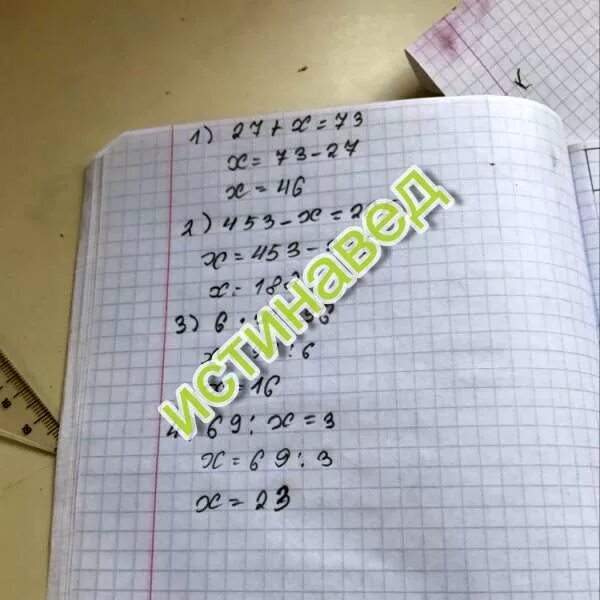 1) 27 + x = 73
x = 73 - 27
x = 46
2) 453 - x = 2
x = 453 -
x = 18
3) 6 ·
: 6
= 16
69 : x = 3
x = 69 : 3
x = 23
истинавед